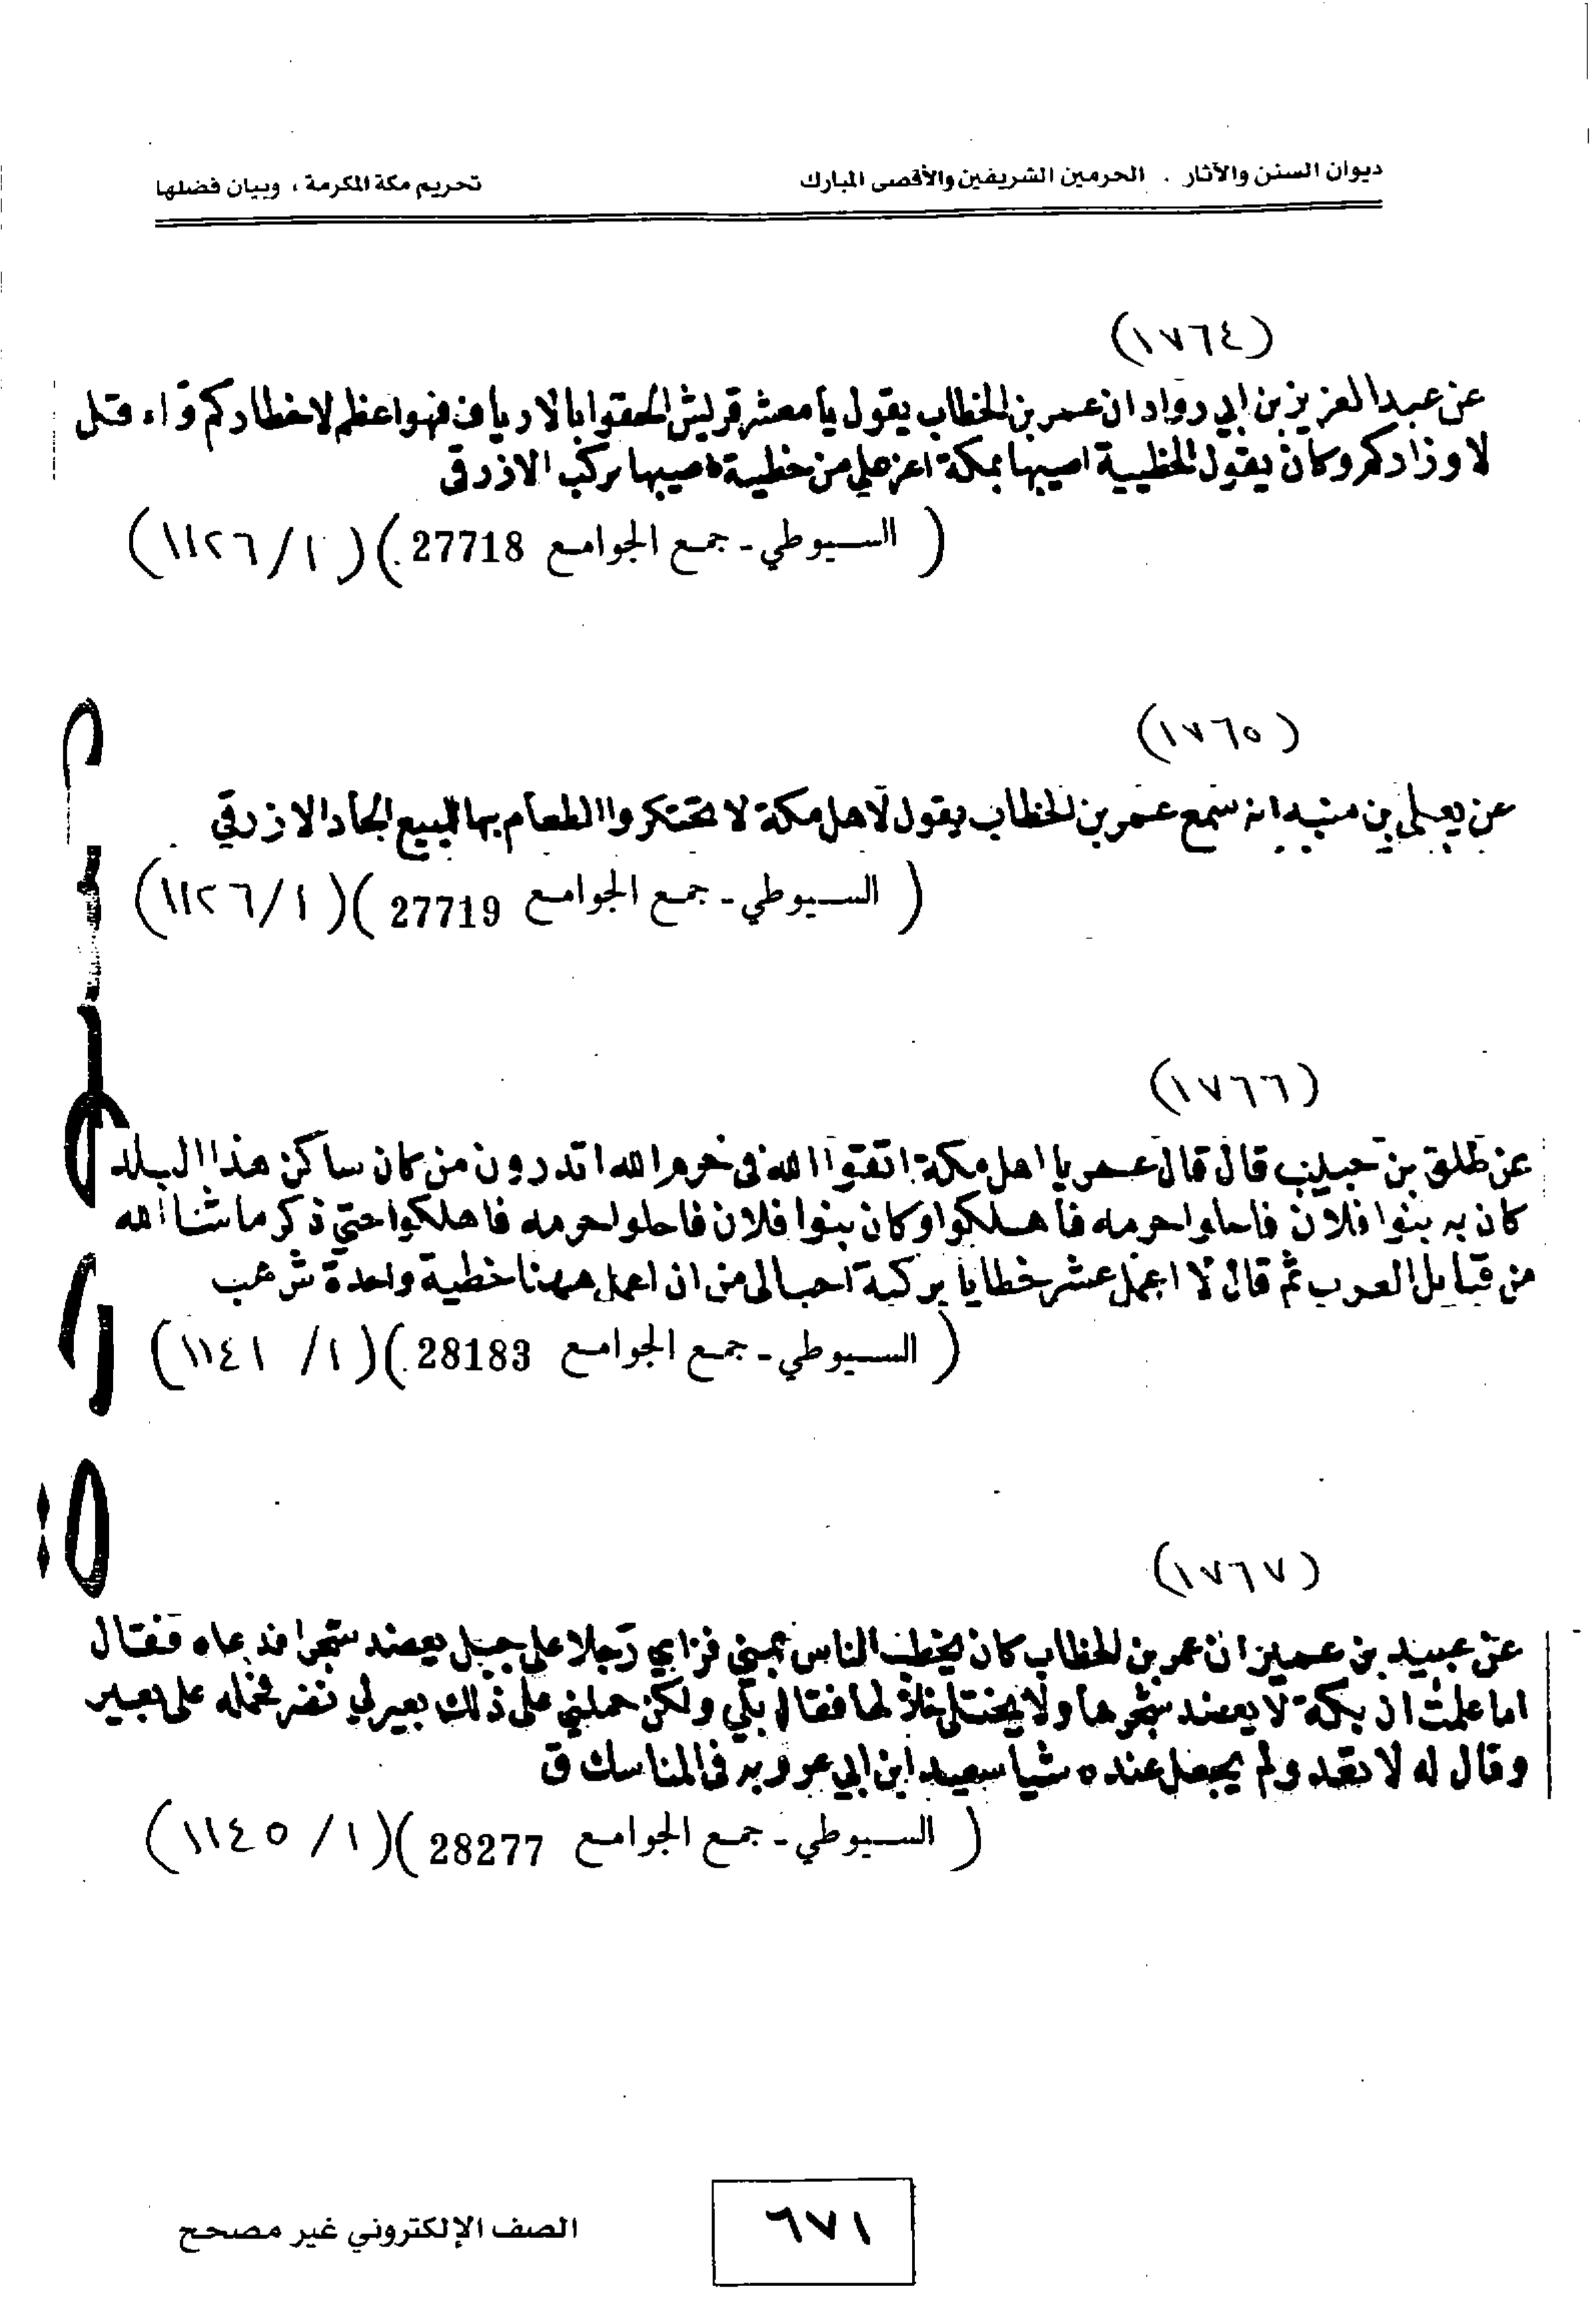 ديوان السنن والآثار . الحرمين الشريفين والأقصى المبارك تحريم مكة المكرمة ، وبيان فضلها
(١٧٦٤)
عن عبد العزيز بن ابي رواد ان عمر بن الخطاب يقول يا معشر قريش الحقوا بالارياف فهوا عظم لاخطاركم واقل
لاوزاركم وكان يقول لخطيية اصيبها بمكة اعز علي من خطية اصيبها بركب الازرقى
( السيوطي - جمع الجوامع 27718 ) ( ١ / ١١٢٦ )
(١٧٦٥)
عن يعلى بن منبه انه سمع عمر بن الخطاب يقول لاهل مكة لا تحتكروا الطعام بها للبيع الحاد الازرقي
( السيوطي - جمع الجوامع 27719 ) ( ١ / ١١٢٦ )
(١٧٦٦)
عن طلق بن حبيب قال قال عمر يا اهل مكة اتقوا الله في حرم الله اتدرون من كان ساكن هذا البلد
كان به بنوا فلان فاحلوا حرمه فاهلكوا وكان بنوا فلان فاحلوا حرمه فاهلكوا حتى ذكر ما شا الله
من قبايل العرب ثم قال لا اعمل عشر خطايا بركبة احب الى من ان اعمل ههنا خطية واحدة ش هب
( السيوطي - جمع الجوامع 28183 ) ( ١ / ١١٤١ )
(١٧٦٧)
عن عبيد بن عمير ان عمر بن الخطاب كان يخطب الناس بمنى فراي رجلا على جبل يعضد شجرا فدعاه فقال
اما علمت ان بكة لا يعضد شجرها ولا يختلى خلاها فقال بلى ولكن حملني على ذلك بعير لي نضر فحمله على بعير
وقال له لا تعد ولم يجعل عنده شيا سعيد ابن ابي عروبه في المناسك ق
( السيوطي - جمع الجوامع 28277 ) ( ١ / ١١٤٥ )
٦٧١
الصف الإلكتروني غير مصحح